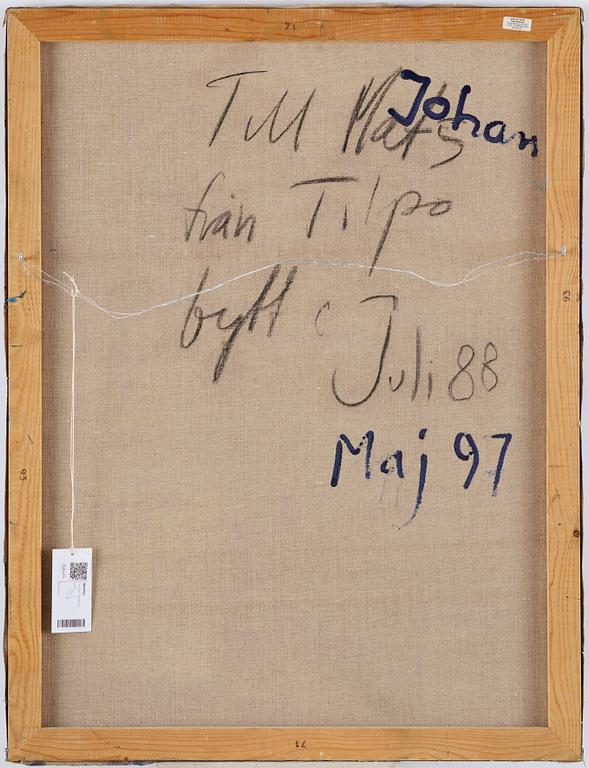 71
Till Mats Johan
från Tilpo
bytt
Juli 88
Maj 97
93
93
71